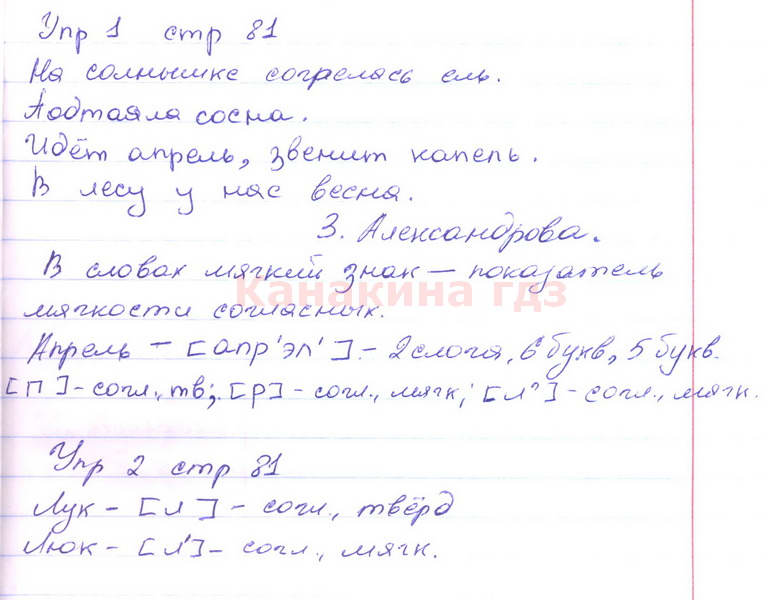 Упр 1 стр 81
На солнышке согрелась ель.
Подтаяла сосна.
Идёт апрель, звенит капель.
В лесу у нас весна.
З. Александрова.
В словах мягкий знак – показатель
Канакина гдз
мягкости согласных.
Апрель – [апр'эл'] – 2 слога, 6 букв, 5 букв.
[П] – согл., тв; [р] – согл., мягк; [л'] – согл., мягк.
Упр 2 стр 81
Лук – [л] – согл., твёрд
Люк – [л'] – согл., мягк.